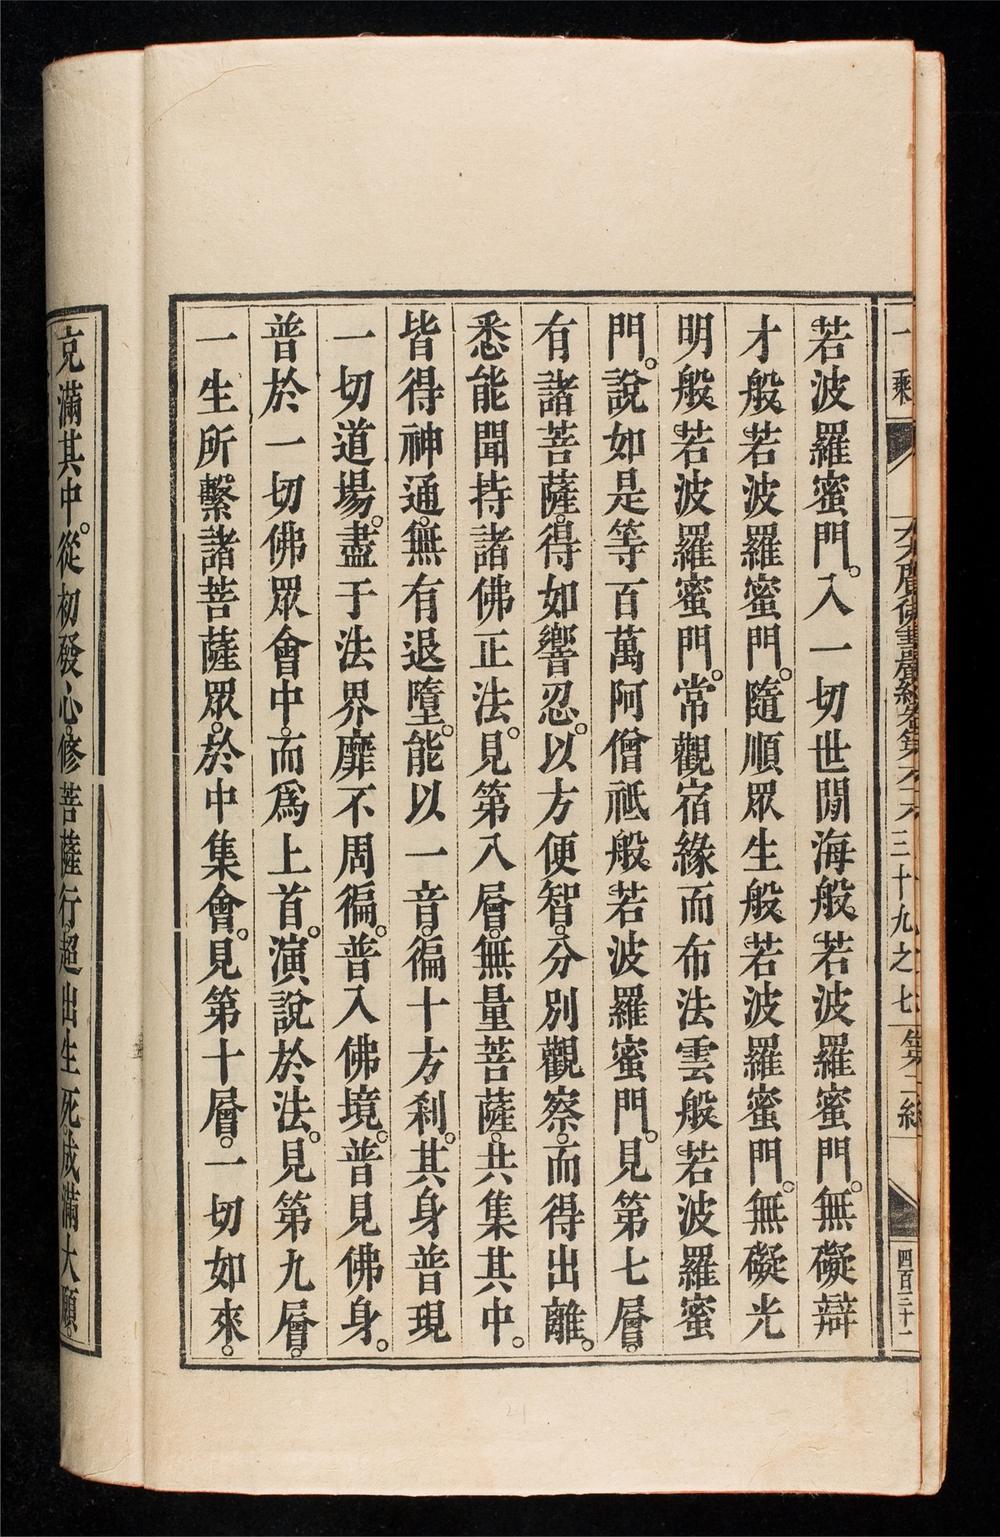 一乘
大方廣佛華嚴經卷第六十六
三十九之七
四百三十一
若波羅蜜門。入一切世閒海般若波羅蜜門。無礙辯
才般若波羅蜜門。隨順眾生般若波羅蜜門。無礙光
明般若波羅蜜門。常觀宿緣而布法雲般若波羅蜜
門。說如是等百萬阿僧祇般若波羅蜜門。見第七層。
有諸菩薩。得如響忍。以方便智。分別觀察。而得出離。
悉能聞持諸佛正法。見第八層。無量菩薩。共集其中。
皆得神通。無有退墮。能以一音。徧十方剎。其身普現
一切道場。盡于法界靡不周徧。普入佛境。普見佛身。
普於一切佛眾會中。而爲上首。演說於法。見第九層。
一生所繫諸菩薩眾。於中集會。見第十層。一切如來。
充滿其中。從初發心。修菩薩行。超出生死。成滿大願。